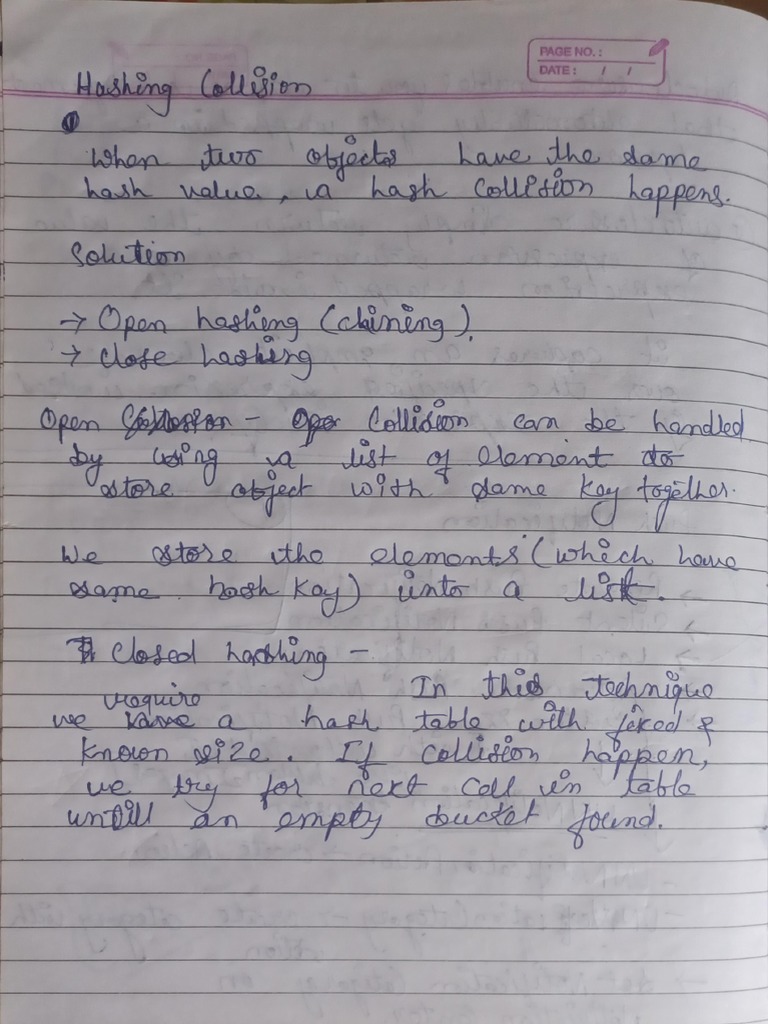 PAGE NO.:
DATE: / /
Hashing Collision
When two objects have the same
hash value, a hash collision happens.
Solution
→ Open hashing (chining).
→ close hashing
Open - Collision can be handled
by using a list of element to
store object with same key together.
We store the elements (which have
same hash key) into a list.
Closed hashing -
In this technique
require
we have a hash table with fixed &
known size. If collision happen,
we try for next cell in table
untill an empty bucket found.